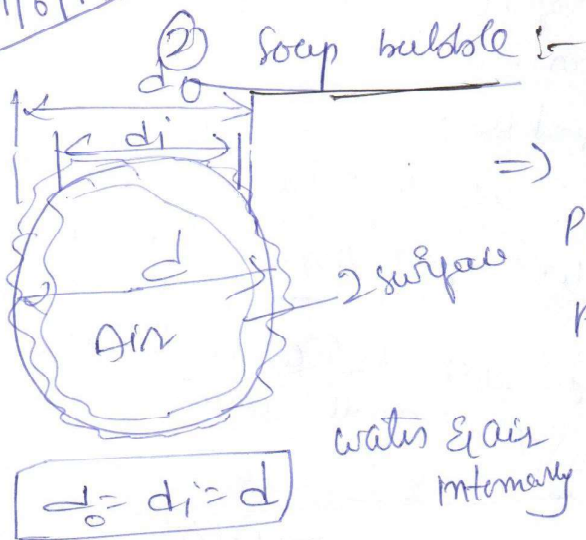 ② Soap bubble :-
do
di
=)
P
d
2 surface
P
Air
water & air
internally
do = di = d